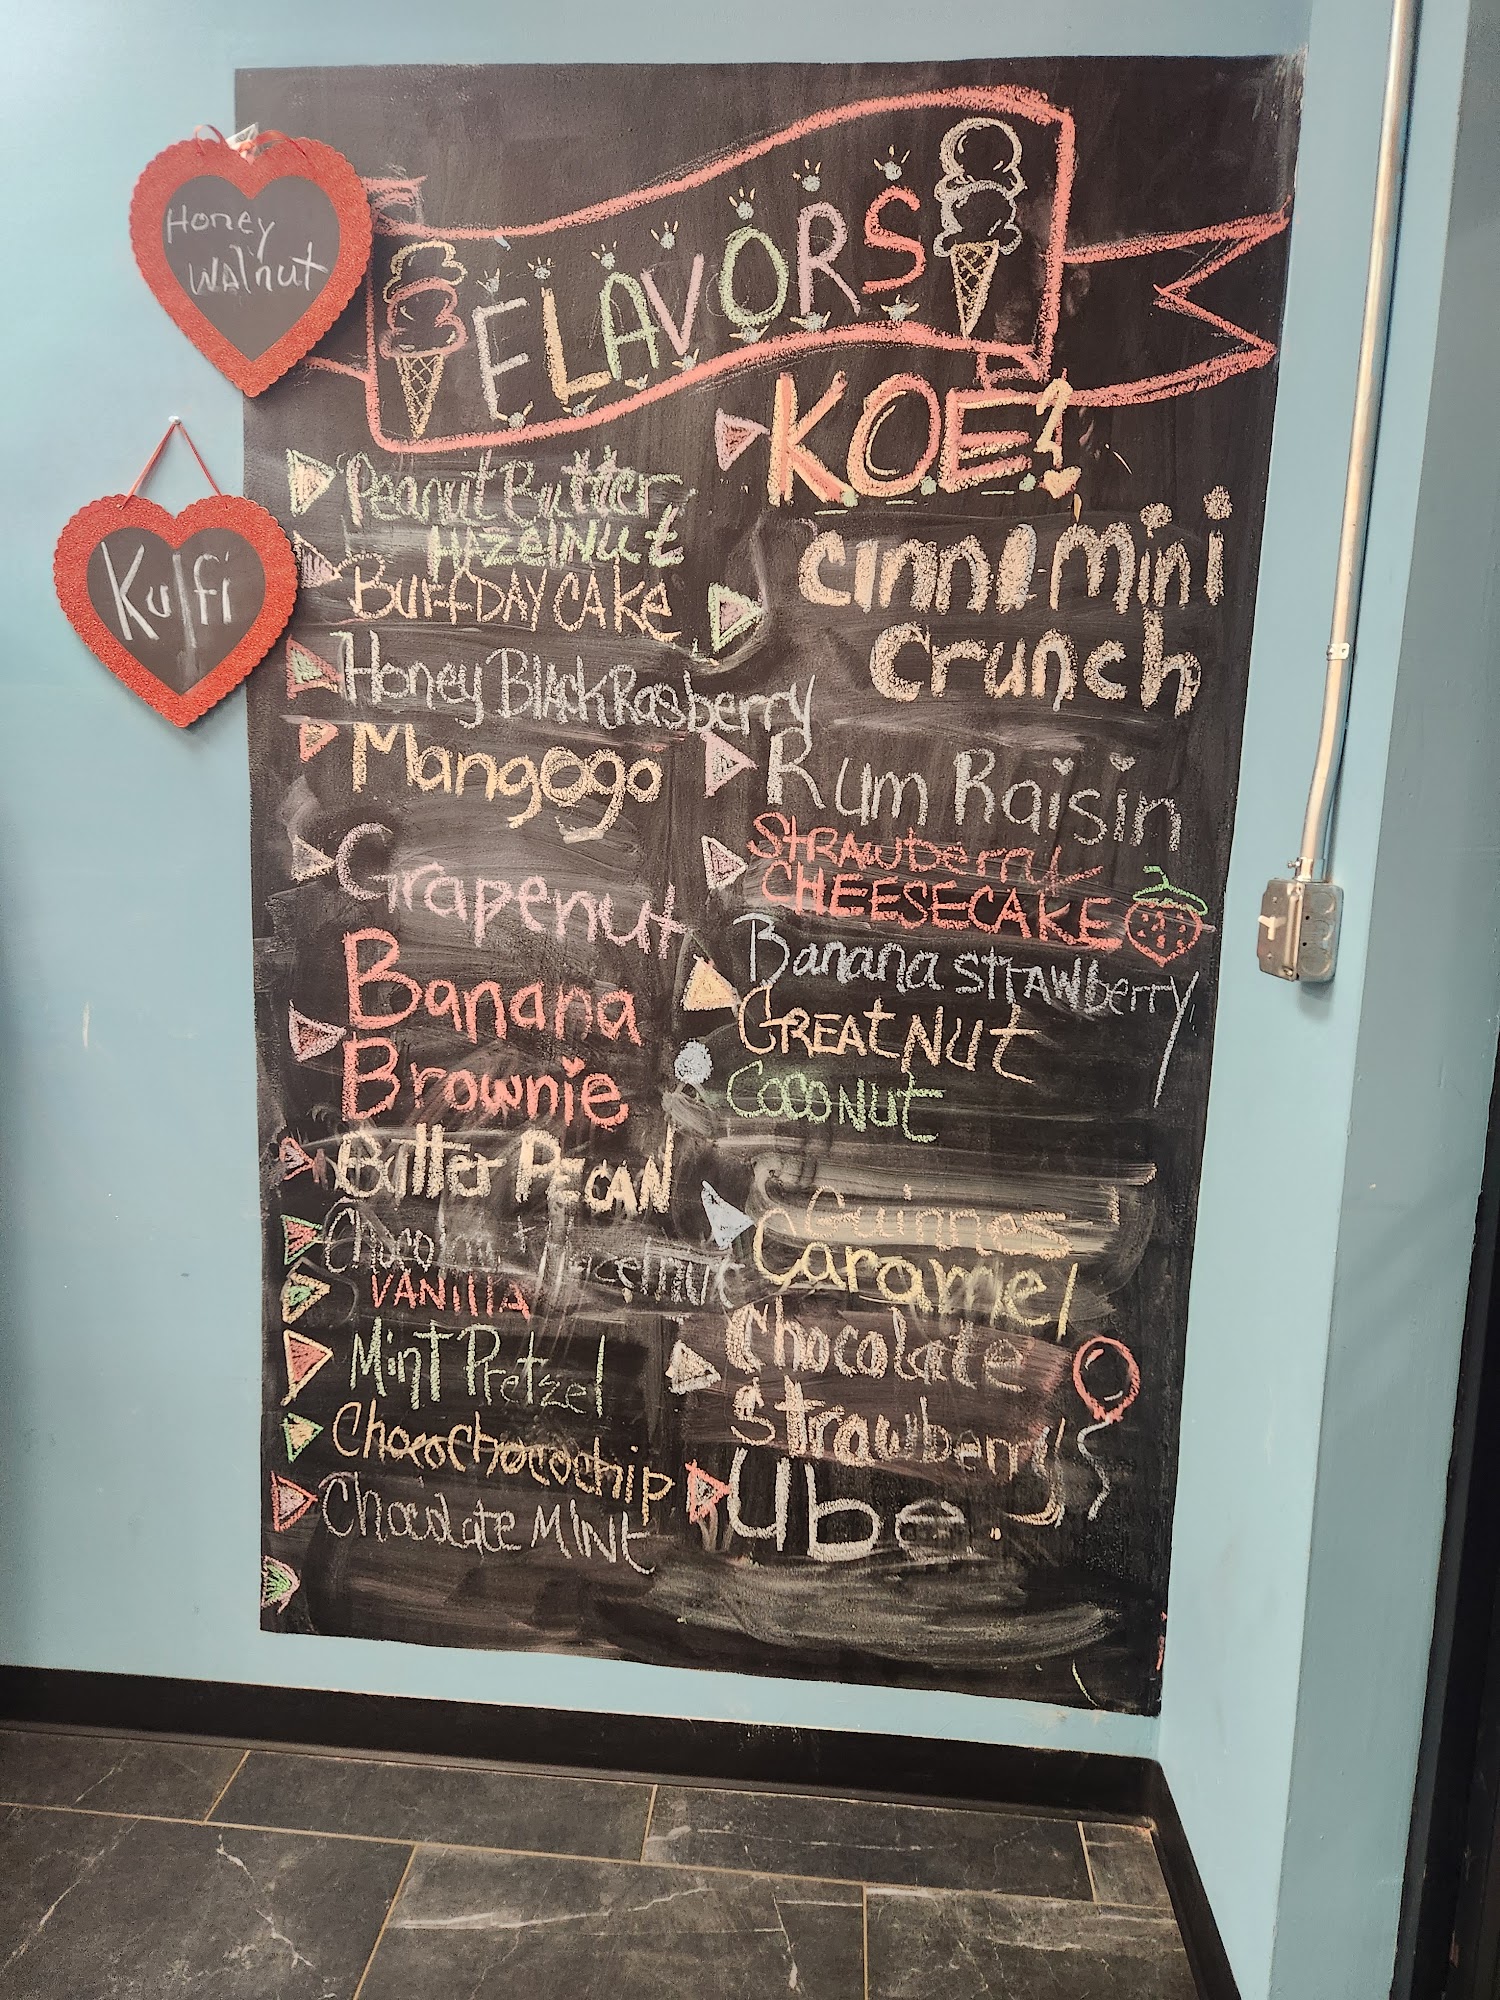 Honey
Walnut
Kulfi
FLAVORS
Peanut Butter
HAZElNUt
BUrfDAY CAKe
Honey BlAck Rasberry
Mangogo
Grapenut
Banana
Brownie
Butter PECAN
Hazelnut
VANIllA
Mint Pretzel
Chocochocochip
Chocolate MINt
KOE?
cinnamini
crunch
Rum Raisin
STRAwberry
CHEESECAKE
Banana sTrAwberry
GREAtNUt
COCONUt
Guinness
Caramel
Chocolate
Strawberry
Ube